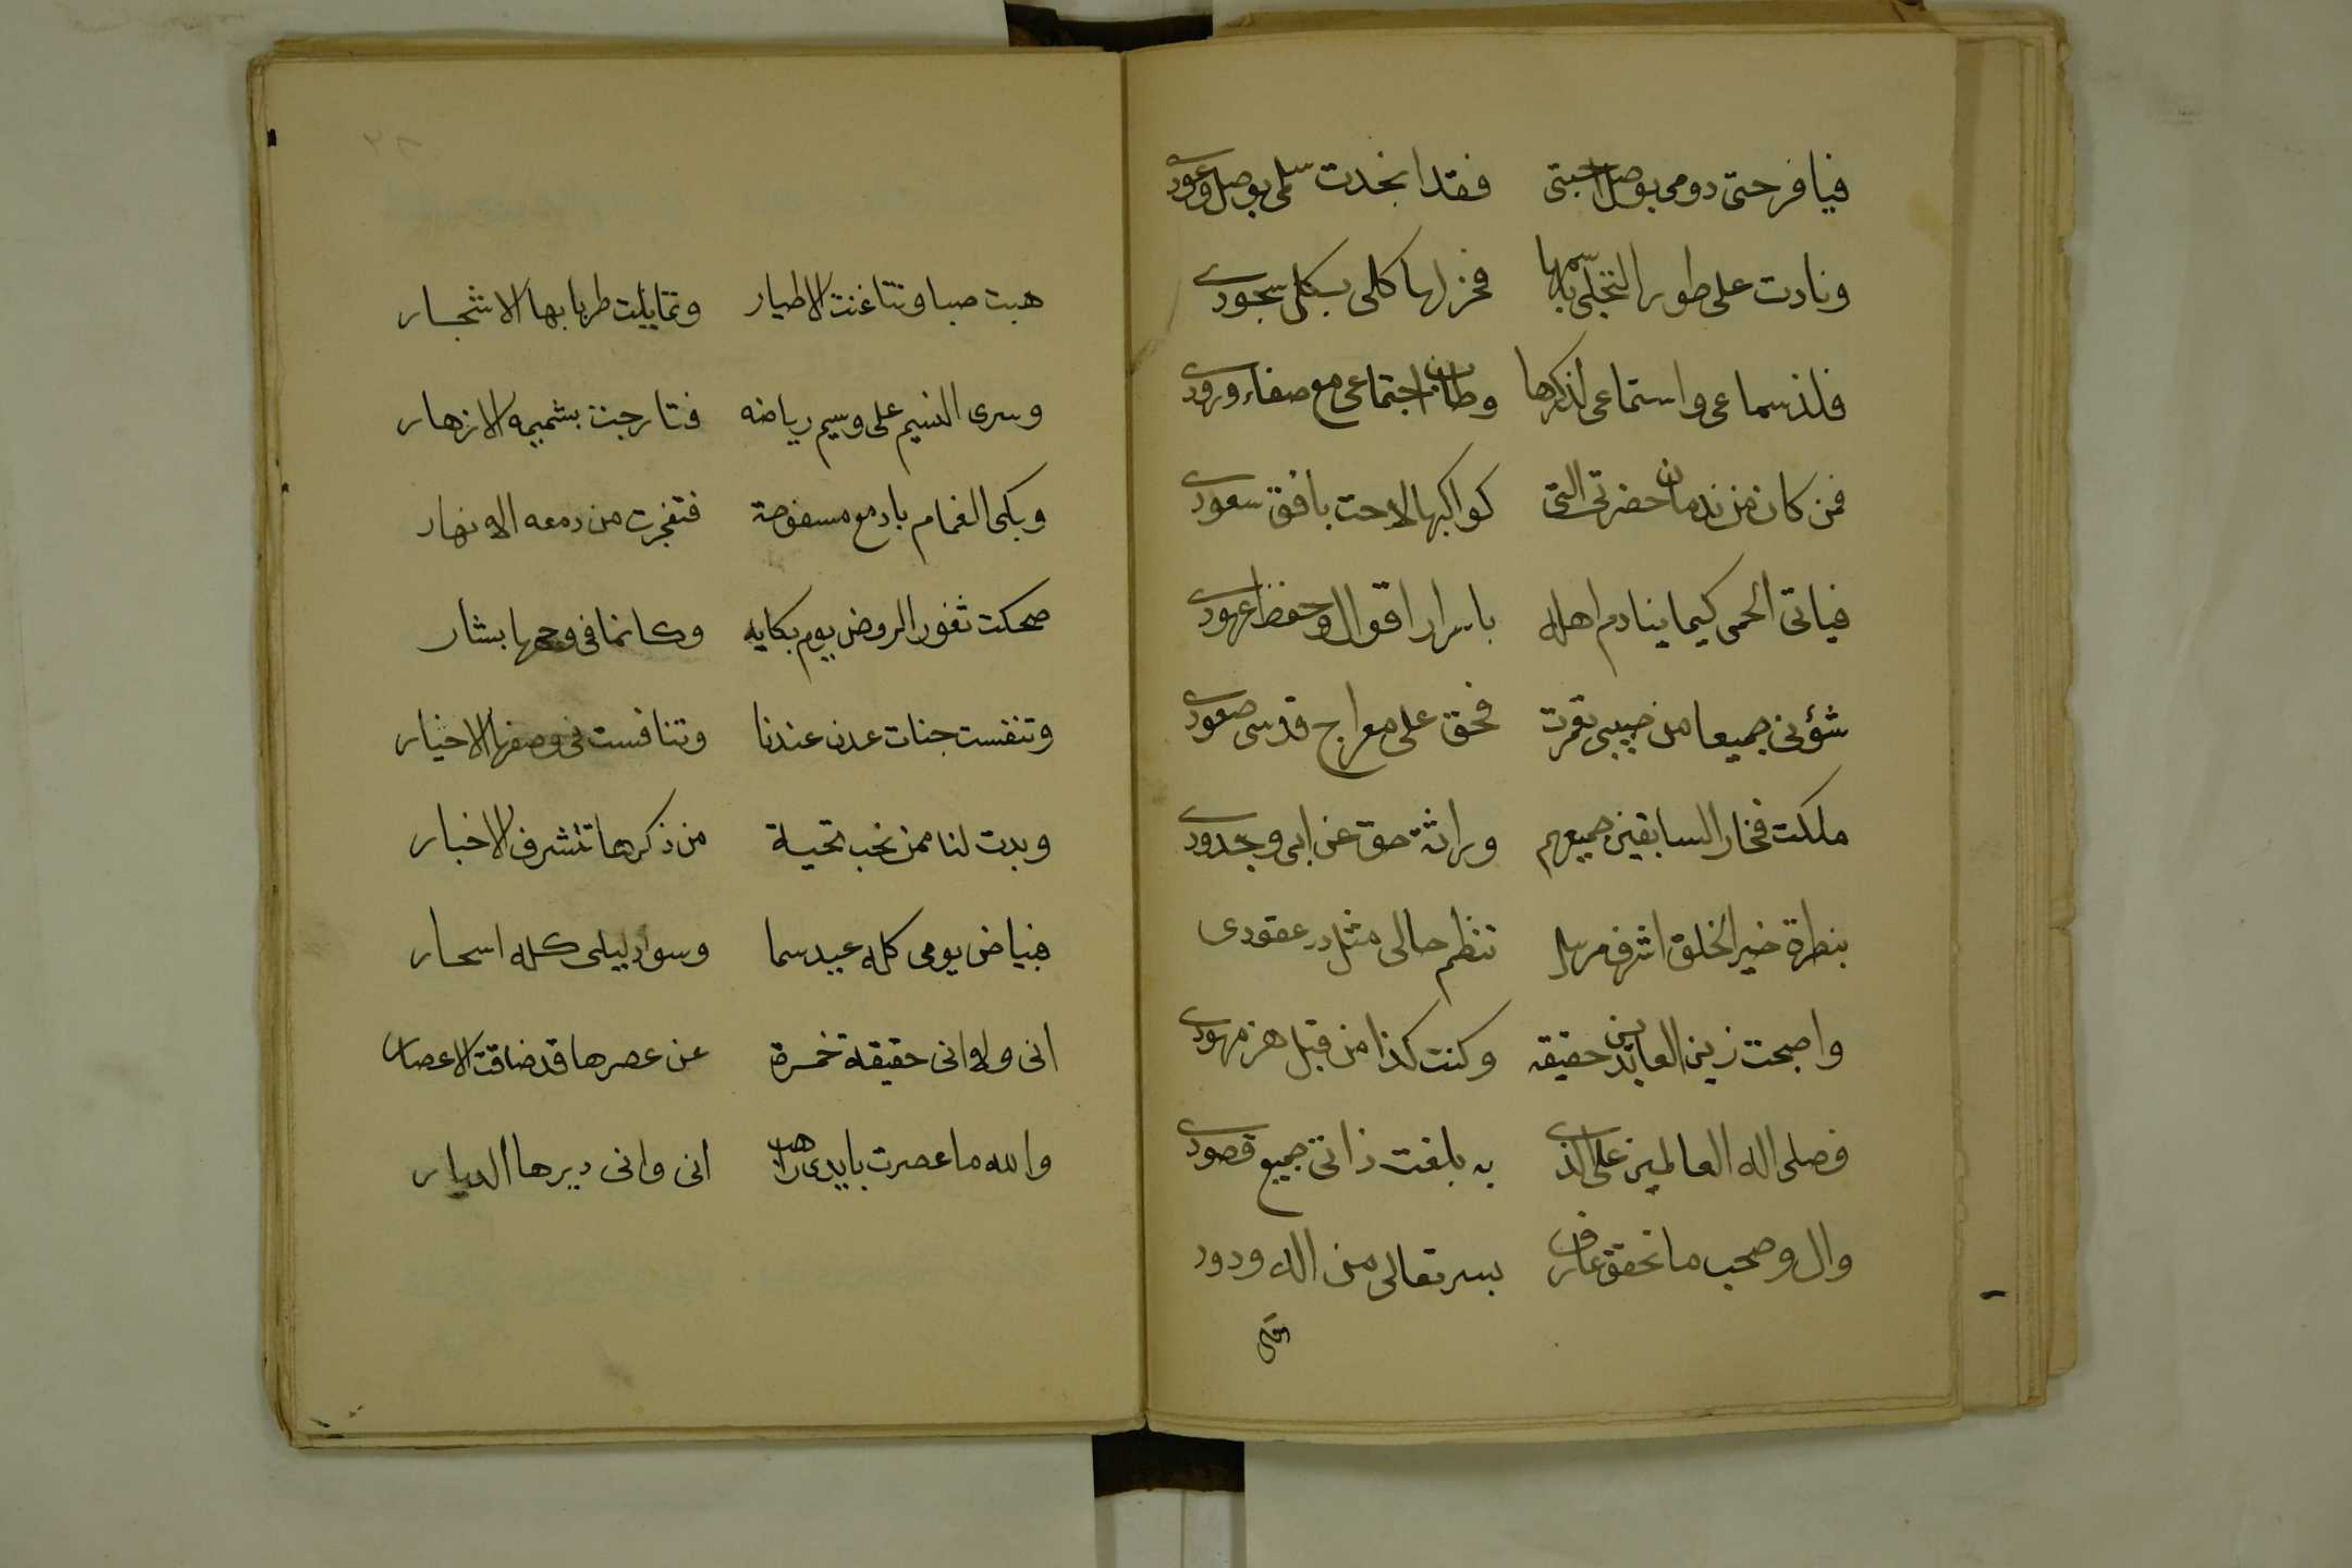 فيا فرحتى دومى بوصل احبتى فقد انجدت سلمى بوصل وعودى
ونادت على طور التجلى باسمها فخر لها كلى بكل سجودى
فلذ سماعى واستماعى لذكرها وطاب اجتماعى مع صفاء ورودى
فمن كان من ندمان حضرتى التى كواكبها لاحت بافق سعودى
فياتى الحمى كيما ينادم اهله باسرار اقوال وحفظ عهودى
شؤنى جميعا من حبيبى تقررت فحق على معراج قدسى صعودى
ملكت فخار السابقين جميعهم وراثة حق عن ابى وجدودى
بنظرة خير الخلق اشرف مرسل تنظم حالى مثل در عقودى
واصبحت زين العابدين حقيقه وكنت كذا من قبل هز مهودى
فصلى اله العالمين على الذى به بلغت ذاتى جميع قصودى
وال وصحب ما تحقق عارف بسر تعالى من اله ودود
هبت صبا وتناغت الاطيار وتمايلت طربا بها الاشجار
وسرى النسيم على وسيم رياضه فتارجت بشميمه الازهار
وبكى الغمام بادمع مسفوحة فتفجرت من دمعه الانهار
ضحكت ثغور الروض يوم بكايه وكانما فى وجهها بشار
وتنفست جنات عدن عندنا وتنافست فى وصفها الاخيار
وبدت لنا ممن نحب تحية من ذكرها تتشرف الاخبار
فبياض يومى كله عيد سما وسواد ليلى كله اسحار
انى ولاوانى حقيقة خمرة عن عصرها قد ضاقت الاعصار
والله ما عصرت بايدى راهب انى وانى ديرها الديار